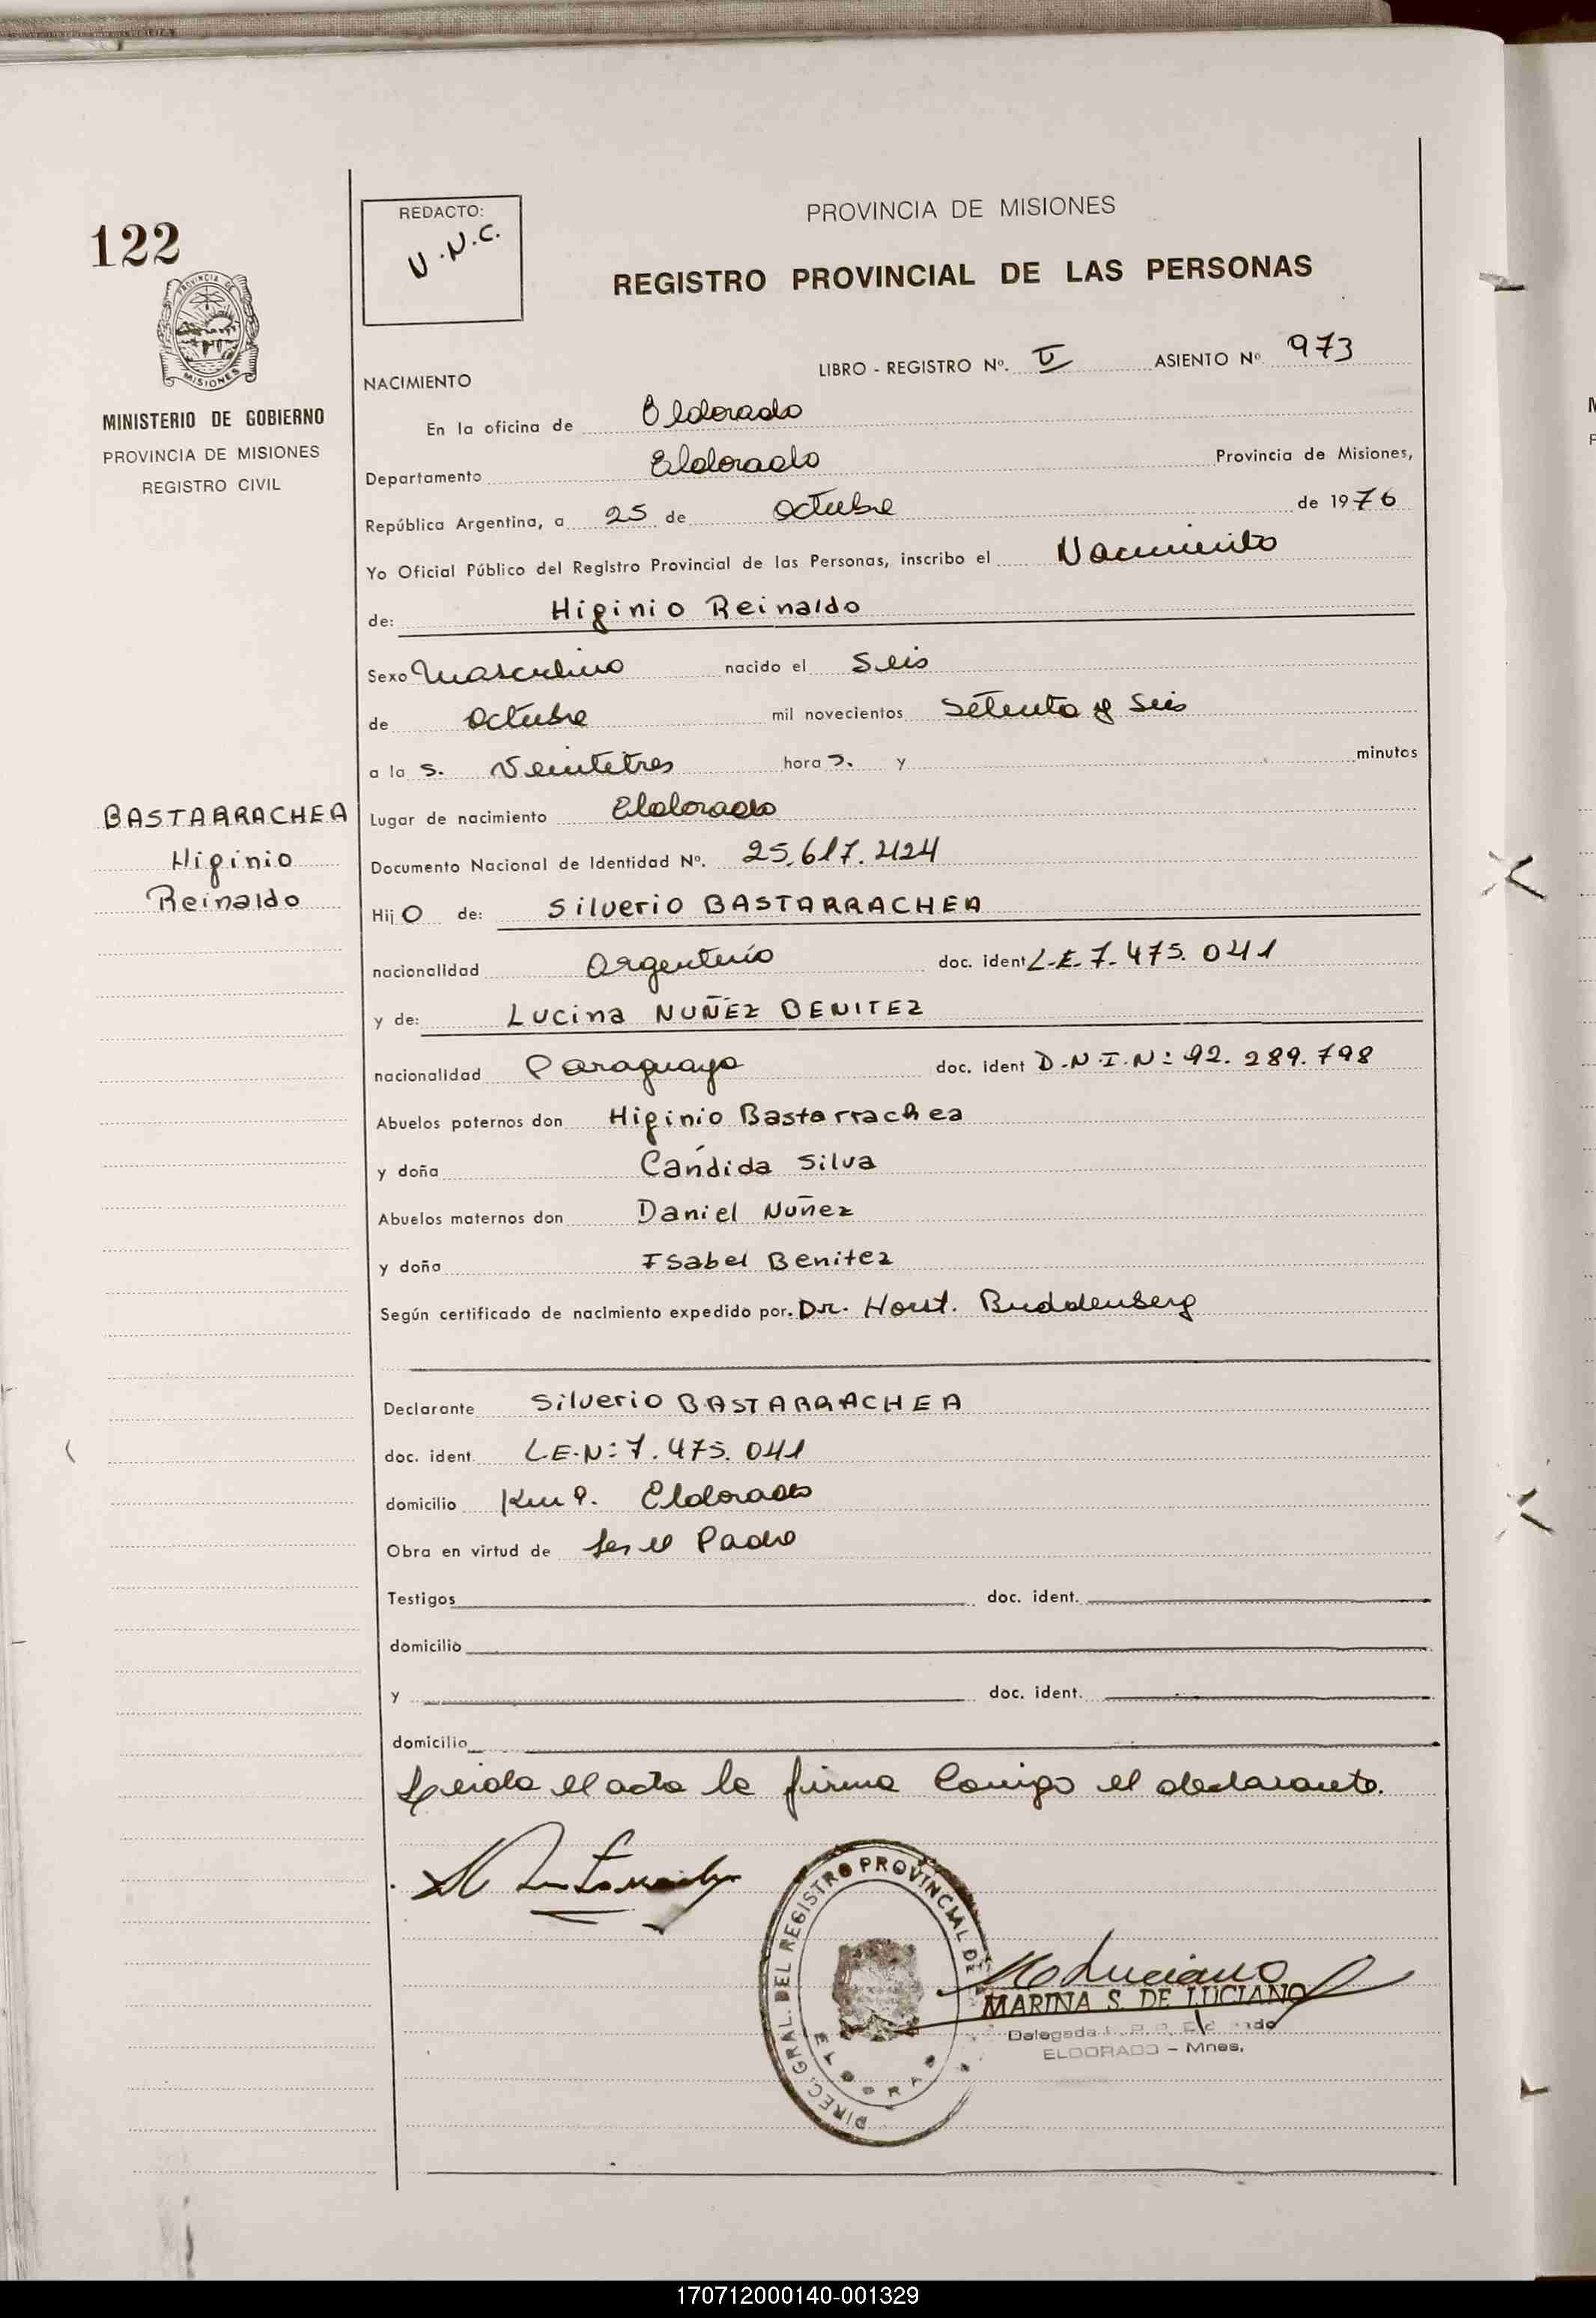 122
REDACTO:
N.N.C.
PROVINCIA DE MISIONES
REGISTRO PROVINCIAL DE LAS PERSONAS
PROVINCIA DE
MISIONES
MINISTERIO DE GOBIERNO
PROVINCIA DE MISIONES
REGISTRO CIVIL
LIBRO - REGISTRO Nº. II ASIENTO Nº 973
NACIMIENTO
En la oficina de Eldorado
Departamento Eldorado Provincia de Misiones,
República Argentina, a 25 de Octubre de 1976
Yo Oficial Público del Registro Provincial de las Personas, inscribo el Nacimiento
de: Higinio Reinaldo
Sexo Masculino nacido el Seis
de Octubre mil novecientos Setenta y Seis
a la s. Veintitres hora s. y minutos
BASTARRACHEA
Higinio
Reinaldo
Lugar de nacimiento Eldorado
Documento Nacional de Identidad Nº. 25.617.424
Hij O de: Silverio BASTARRACHEA
nacionalidad Argentino doc. ident L.E. 7.475.041
y de: Lucina NUÑEZ BENITEZ
nacionalidad Paraguaya doc. ident D.N.I.N: 92.289.798
Abuelos paternos don Higinio Bastarrachea
y doña Cándida Silva
Abuelos maternos don Daniel Nuñez
y doña Isabel Benitez
Según certificado de nacimiento expedido por. Dr. Horst. Buddenberg
Declarante Silverio BASTARRACHEA
doc. ident. L.E.N: 7.475.041
domicilio Km 9. Eldorado
Obra en virtud de Ser el Padre
Testigos doc. ident.
domicilio
y doc. ident.
domicilio
Leida el acta la firma Conmigo el declarante.
DIREC. GRAL. DEL REGISTRO PROVINCIAL DE
MLuciano
MARINA S. DE LUCIANO
Delegada
ELDORADO - Mnes.
170712000140-001329